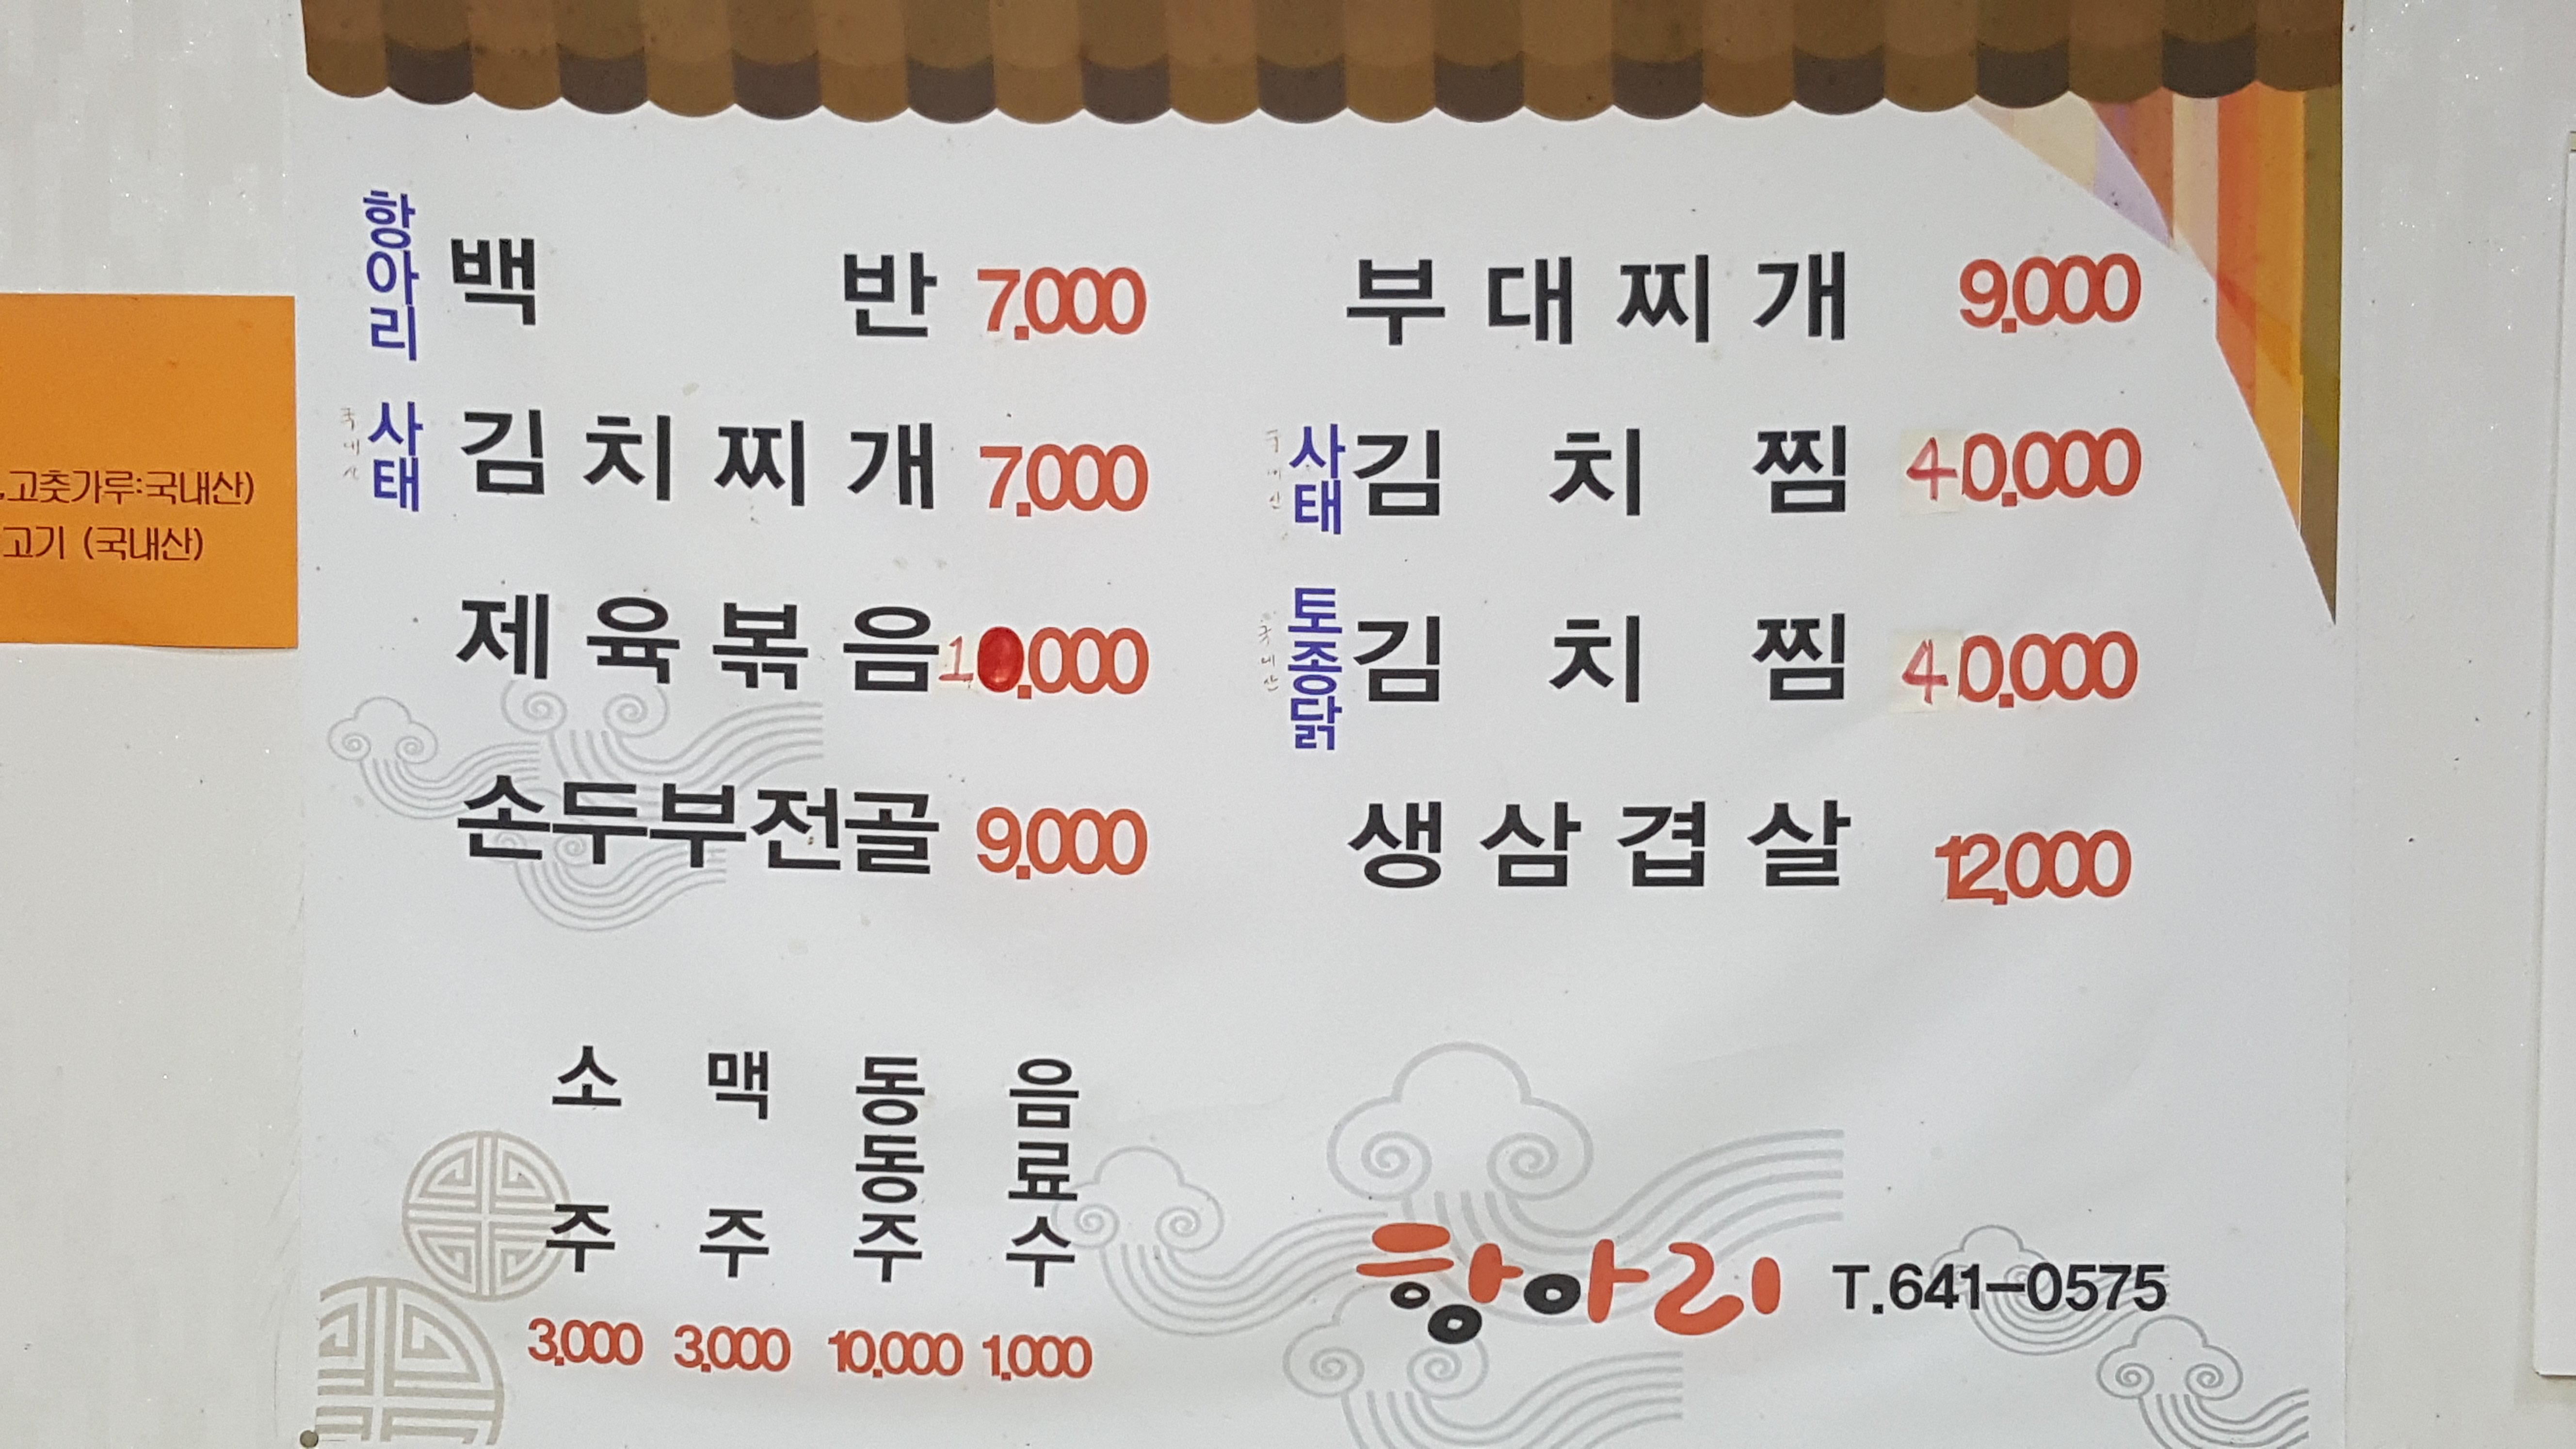 항아리 백반 7.000
국내산 사태 김치찌개 7.000
제육볶음 10.000
손두부전골 9.000
부대찌개 9.000
국내산 사태 김치찜 40.000
국내산 토종닭 김치찜 40.000
생삼겹살 12.000
소주 3.000
맥주 3.000
동동주 10.000
음료수 1.000
항아리 T.641-0575
,고춧가루:국내산)
고기 (국내산)